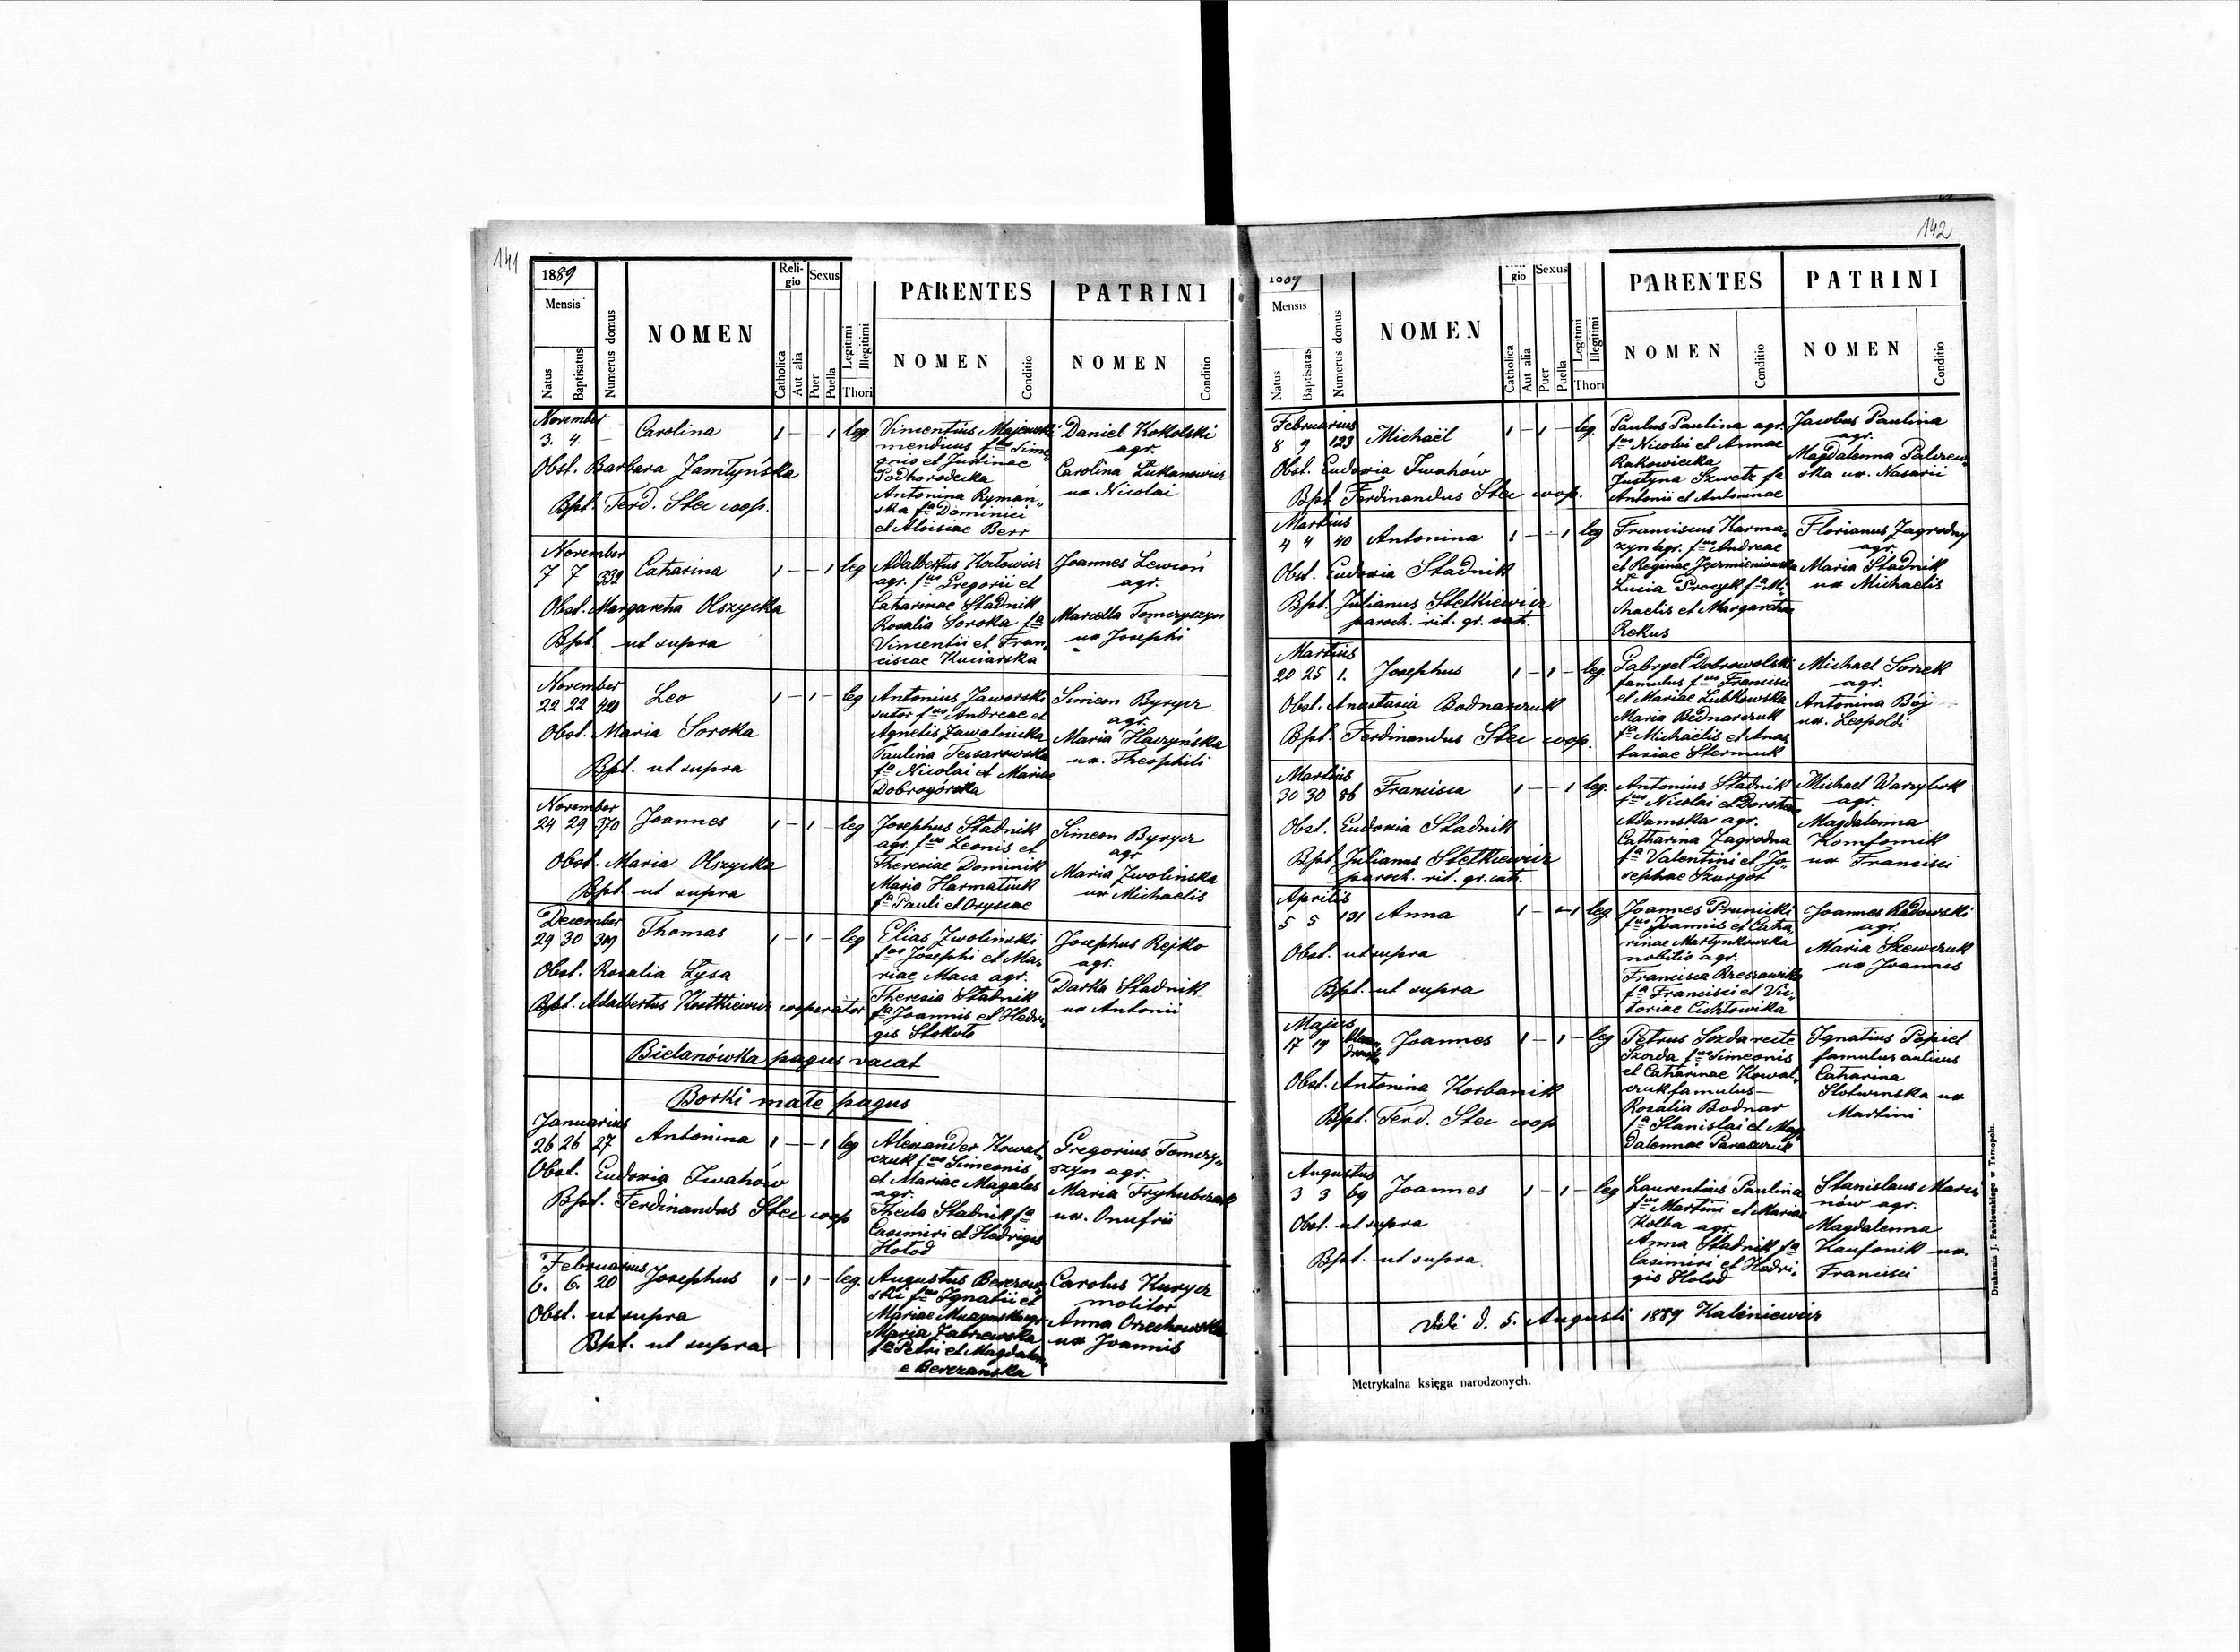 141
1889
Mensis
Natus
Baptisatus
Numerus domus
NOMEN
Religio
Catholica
Aut alia
Sexus
Puer
Puella
Legitimi
Illegitimi
Thori
PARENTES
NOMEN
Conditio
PATRINI
NOMEN
Conditio
November
3. 4. — Carolina 1 — — 1 leg
Obst. Barbara Zamłyńska
Bpt. Ferd. Stec coop.
Vincentius Majewski
mendicus fus Sime
onis et Justinae
Podhorodecka
Antonina Rymań„
ska fa Dominici
et Aloisiae Berr
Daniel Kokolski
agr.
Carolina Łukanowicz
ux Nicolai
November
7 7 332 Catharina 1 — — 1 leg.
Obst. Margaretha Olszycka
Bpt. ut supra
Adalbertus Kozłowicz
agr. fus Gregorii et
Catharinae Stadnik
Rosalia Soroka fa
Vincentii et Fran„
ciscae Kuciarska
Joannes Lewcoń
agr.
Marcella Tomczyszyn
ux Josephi
November
22 22 420 Leo 1 — 1 — leg
Obst. Maria Soroka
Bpt. ut supra
Antonius Jaworski
sutor fus Andreae et
Agnetis Zawalnicka
Paulina Tessarowska
fa Nicolai et Mariae
Dobrogórska
Simeon Byrycz
agr.
Maria Haczyńska
ux. Theophili
November
24 29 370 Joannes 1 — 1 — leg
Obst. Maria Olszycka
Bpt. ut supra
Josephus Stadnik
agr. fus Leonis et
Theresiae Dominik
Maria Harmatiuk
fa Pauli et Orysiae
Simeon Byrycz
agr
Maria Zwolinska
ux Michaelis
December
29 30 309 Thomas 1 — 1 — leg
Obst. Rosalia Łysa
Bpt. Adalbertus Kostkiewicz cooperator
Elias Zwolinski
fus Josephi et Ma„
riae Maca agr.
Theresia Stadnik
fa Joannis et Hedwi
gis Stokoło
Josephus Rejko
agr.
Darka Stadnik
ux Antonii
Bielanówka pagus vacat
Borki małe pagus
Januarius
26 26 27 Antonina 1 — — 1 leg
Obst. Eudoxia Iwahów
Bpt. Ferdinandus Stec coop
Alexander Kowal„
czuk fus Simeonis
et Mariae Magalas
agr.
Thecla Stadnik fa
Casimiri et Hedvigis
Hołod
Gregorius Tomczy„
szyn agr.
Maria Fryhubczak
ux. Onufrii
Februarius
6. 6. 20 Josephus 1 — 1 — leg.
Obst. ut supra
Bpt. ut supra
Augustus Berezow„
ski fus Ignatii et
Mariae
Maria Zabrzewska
fa Petri et Magdalen
e Berezanska
Carolus Kurycz
molitor
Anna Orzechowska
ux Joannis
142
1889
Mensis
Natus
Baptisatas
Numerus domus
NOMEN
gio
Catholica
Aut alia
Sexus
Puer
Puella
Legitimi
Illegitimi
Thori
PARENTES
NOMEN
Conditio
PATRINI
NOMEN
Conditio
Februarius
8 9 123 Michaël 1 — 1 — leg.
Obst. Eudoxia Iwahów
Bpt Ferdinandus Stec coop.
Paulus Paulina agr.
fus Nicolai et Annae
Rakowiecka
Justyna Szwetz fa
Antonii et Antoninae
Jacobus Paulina
agr.
Magdalenna Palczew„
ska ux. Nasarii
Martius
4 4 40 Antonina 1 — — 1 leg
Obst. Eudoxia Stadnik
Bpt. Julianus Stetkiewicz
paroch. rit. gr. cath.
Franciscus Karma„
zyn agr. fus Andreae
et Reginae Jezmieniowska
Lucia Procyk fa Mi„
chaelis et Margarethae
Rekus
Florianus Zagrodny
agr.
Maria Stadnik
ux Michaelis
Martius
20 25 1. Josephus 1 — 1 — leg.
Obst. Anastasia Bodnarczuk
Bpt. Ferdinandus Stec coop.
Gabryel Dobrowolski
famulus fus Francisci
et Mariae Lubkowska
Maria Bednarczuk
fa Michaëlis et Anas
tasiae Stermuk
Michael Sorzek
agr.
Antonina Bój
ux. Leopoldi
Martius
30 30 86 Francisca 1 — — 1 leg.
Obst. Eudoxia Stadnik
Bpt. Julianus Stetkiewicz
paroch. rit. gr. cath.
Antonius Stadnik
fus Nicolai et Dorotheae
Adamska agr.
Catharina Zagrodna
fa Valentini et Jo„
sephae Szurgot
Michael Warzybok
agr.
Magdalenna
Komfornik
ux Francisci
Aprilis
5 5 131 Anna 1 — — 1 leg.
Obst. ut supra
Bpt. ut supra
Joannes Prunicki
fus Joannis et Catha„
rinae Martynkowska
nobilis agr.
Francisca Brezawika
fa Francisci et Vic„
toriae Cichłowska
Joannes Radowski
agr.
Maria Szewczuk
ux Joannis
Majus
17 19 Joannes 1 — 1 — leg
Obst. Antonina Korbanik
Bpt. Ferd. Stec coop
Petrus Sozda recte
Szorda fus Simeonis
et Catharinae Kowal„
czuk famulus —
Rosalia Bodnar
fa Stanislai et Mag
dalennae Paraszczuk
Ignatius Popiel
famulus aulicus
Catharina
Słotwinska ux
Martini
Augustus
3 3 69 Joannes 1 — 1 — leg
Obst. ut supra
Bpt. ut supra
Laurentius Paulina
fus Martini et Mariae
Kolba agr
Anna Stadnik fa
Casimiri et Hedvi„
gis Hołod
Stanislaus Marci
nów agr.
Magdalenna
Kaufonik ux.
Francisci
Vidi d. 5. Augusti 1889 Kaliniewicz
Metrykalna księga narodzonych.
Drukarnia J. Pawłowskiego w Tarnopolu.